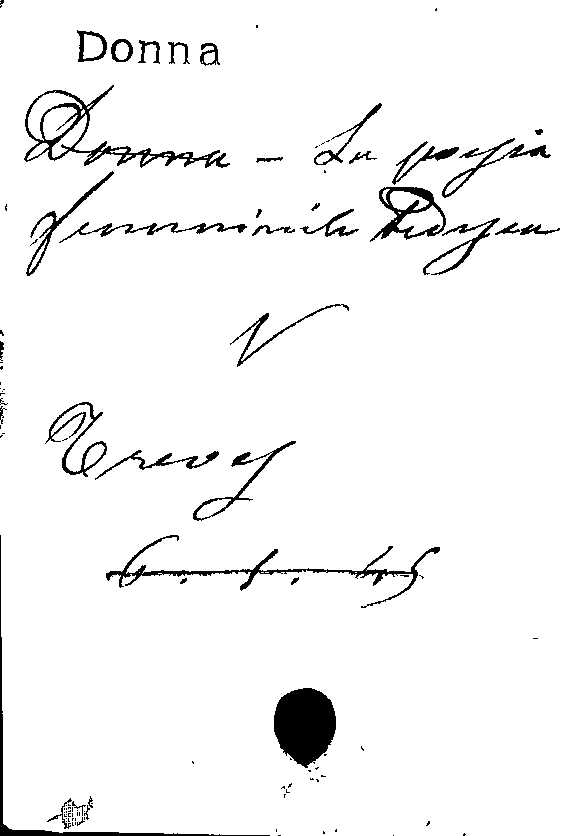 Donna
Donna - La poesia
femminile
V
Treves
6. 1. 45